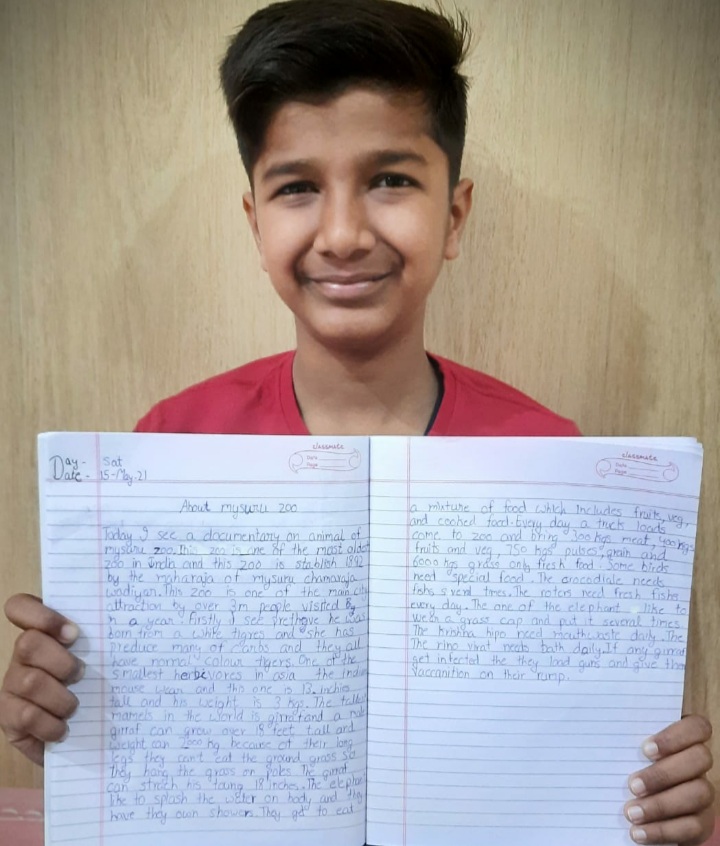 classmate
Date
Page
Day - Sat
Date - 15-May.21
About mysuru zoo
Today I see a documentary on animal of
mysuru zoo. This zoo is one of the most oldest
zoo in India and this zoo is stablish 1892
by the maharaja of mysuru chamaraja
wadiyan. This zoo is one of the main city
attraction by over 3m people visited by
n a year. Firstly I see prethove he was
born from a white tigres and she has
preduce many of canbs and they all
have normal colour tigers. One of the
smallest herbevores in asia the indian
mouse and this one is 13. inchies
tall and his weight is 3 kgs. The tallest
mamels in the world is girraf and a male
girraf can grow over 18 feet tall and
weight can 2000 kg because of their long
legs they can't eat the ground grass so
They hang the grass on poles. The girraf
can strach his toung 18 inches. The elephant
like to splash the water on body and they
have they own showers. They get to eat
classmate
Date
Page
a mixture of food which includes fruits, veg,
and cooked food. Every day a truck loads
come to zoo and bring 300 kgs meat, 400 kgs
fruits and veg, 750 kgs pulses, grain and
6000 kgs grass only fresh food. Some birds
need special food. The crocodiale needs
fishs several times. The need fresh fishs
every day. The one of the elephant like to
wear a grass cap and put it several times.
The Krishna hipo need daily. The
The rino virat needs bath daily. If any girraf
get infected the they load guns and give them
Vaccanition on their rump.